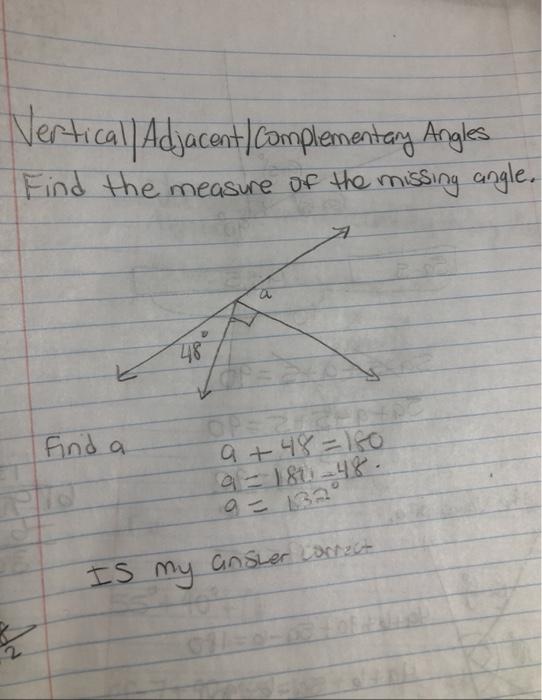 Vertical/Adjacent/Complementary Angles
Find the measure of the missing angle.
a
48°
Find a
a + 48 = 180
a = 180 - 48.
a = 132°
Is my answer correct
2